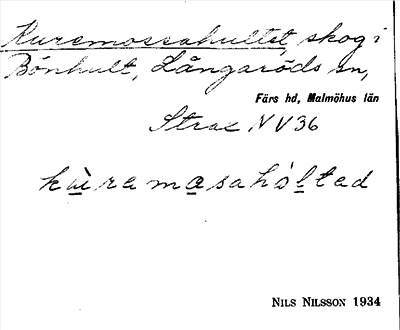 Kuremossahultet, skog i
Bönhult, Långaröds sn,
Färs hd, Malmöhus län
Strax NV 36
kùremasahòltad
NILS NILSSON 1934